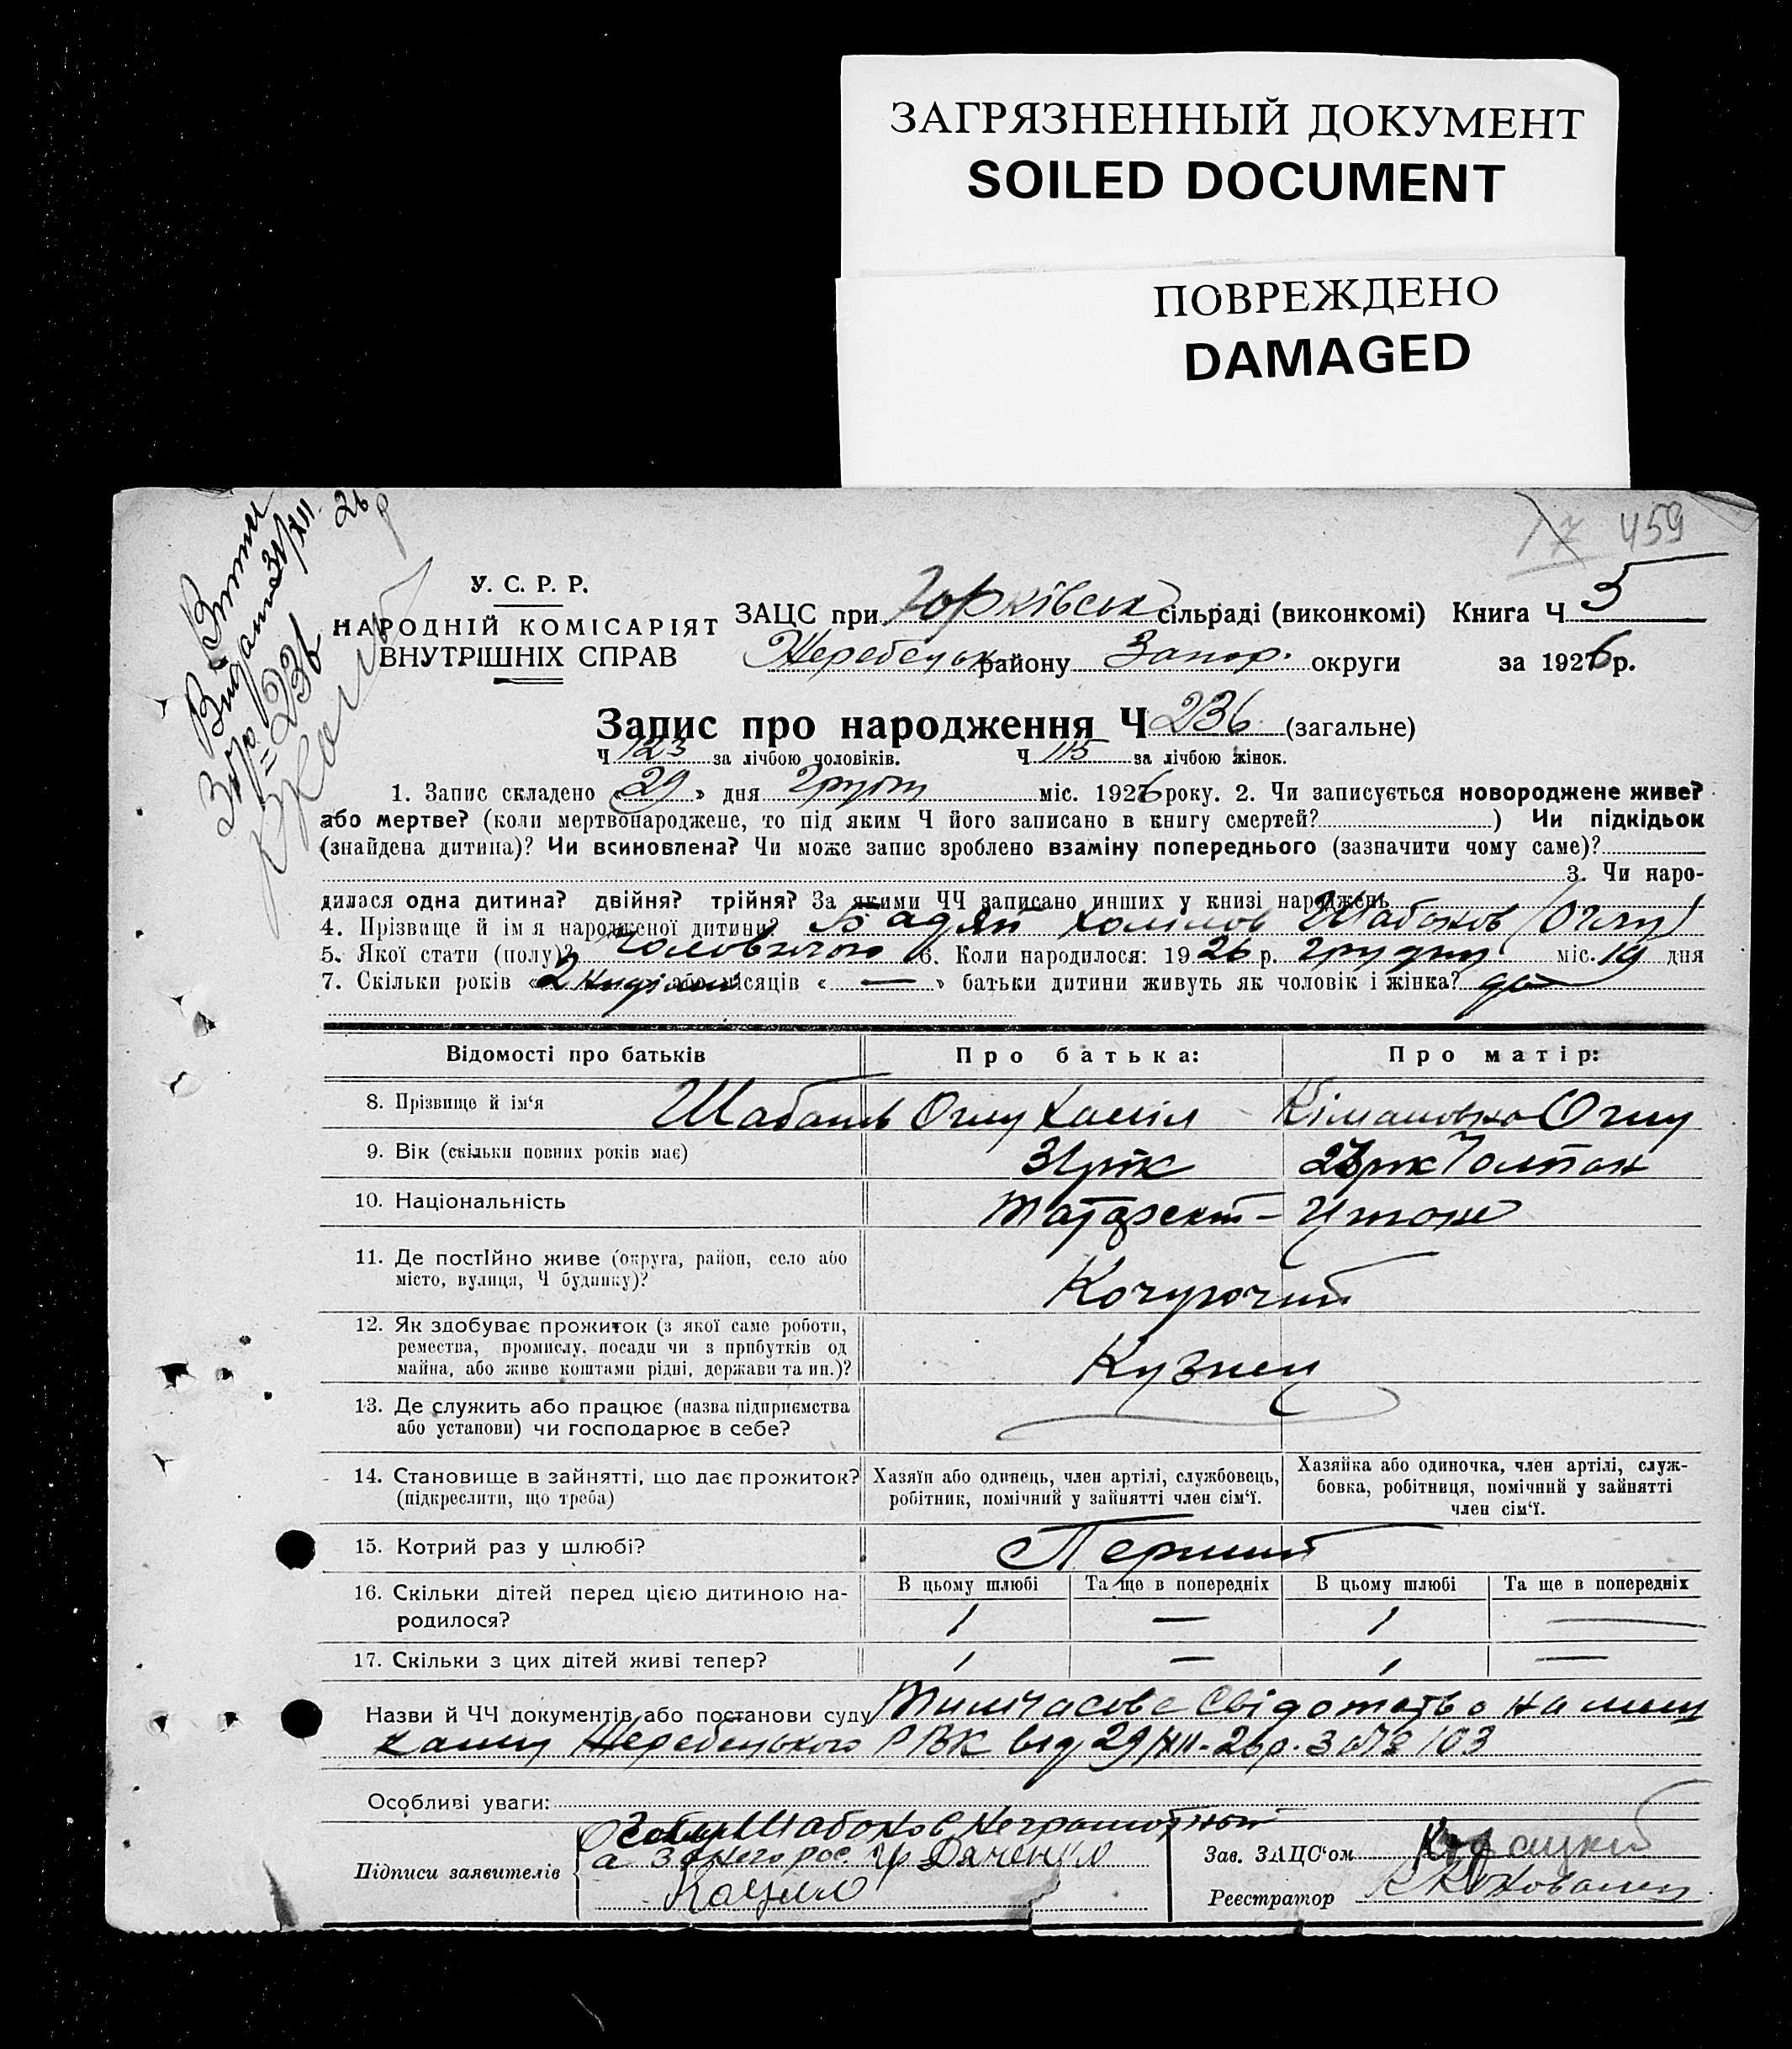 ЗАГРЯЗНЕННЫЙ ДОКУМЕНТ
SOILED DOCUMENT
ПОВРЕЖДЕНО
DAMAGED
17 459
Витяг
Видано 31/XII 26 р
З№ = 236
У. С. Р. Р.
НАРОДНІЙ КОМІСАРІЯТ
ВНУТРІШНІХ СПРАВ
ЗАЦС при сільраді (виконкомі) Книга Ч 5
Жеребецьк району Запор. округи за 1926 р.
Запис про народження Ч 236 (загальне)
Ч 123 за лічбою чоловіків. Ч 115 за лічбою жінок.
1. Запис складено «29» дня Грудн міс. 1926 року. 2. Чи записується новороджене живе?
або мертве? (коли мертвонароджене, то під яким Ч його записано в книгу смертей? ) Чи підкідьок
(знайдена дитина)? Чи всиновлена? Чи може запис зроблено взаміну попереднього (зазначити чому саме)?
3. Чи наро-
дилася одна дитина? двійня? трійня? За якими ЧЧ записано инших у книзі народжень
4. Прізвище й ім я народженої дитини? Шабанов (Огли)
5. Якої стати (полу)? чоловичою 6. Коли народилося: 1926 р. грудни міс. 19 дня
7. Скільки років «2 або місяців « — » батьки дитини живуть як чоловік і жінка? да
Відомості про батьків Про батька: Про матір:
8. Прізвище й ім'я Шабань Огли Халіл Огли
9. Вік (скільки повних років має) 31 рік
10. Національність
11. Де постІйно живе (округа, район, село або
місто, вулиця, Ч будинку)?
Кочуючий
12. Як здобуває прожиток (з якої саме роботи,
ремества, промислу, посади чи з прибутків од
майна, або живе коштами рідні, держави та ин.)?
Кузнец
13. Де служить або працює (назва підприємства
або установи) чи господарює в себе?
14. Становище в зайнятті, що дає прожиток?
(підкреслити, що треба)
Хазяїн або одинець, член артілі, службовець,
робітник, помічний у зайнятті член сім'ї.
Хазяйка або одиночка, член артілі, служ-
бовка, робітниця, помічний у зайнятті
член сім'ї.
15. Котрий раз у шлюбі? Перший
16. Скільки дітей перед цією дитиною на-
родилося?
В цьому шлюбі Та ще в попередніх В цьому шлюбі Та ще в попередніх
1 — 1 —
17. Скільки з цих дітей живі тепер? 1 — 1 —
Назви й ЧЧ документів або постанови суду Тимчасове свідотство на
Жеребецького РВК від 29/XII-26 р. з №103
Особливі уваги:
Підписи заявителів
Шабанов неграмотный
а з його рос. гр Дяченко
Зав. ЗАЦС'ом
Реєстратор